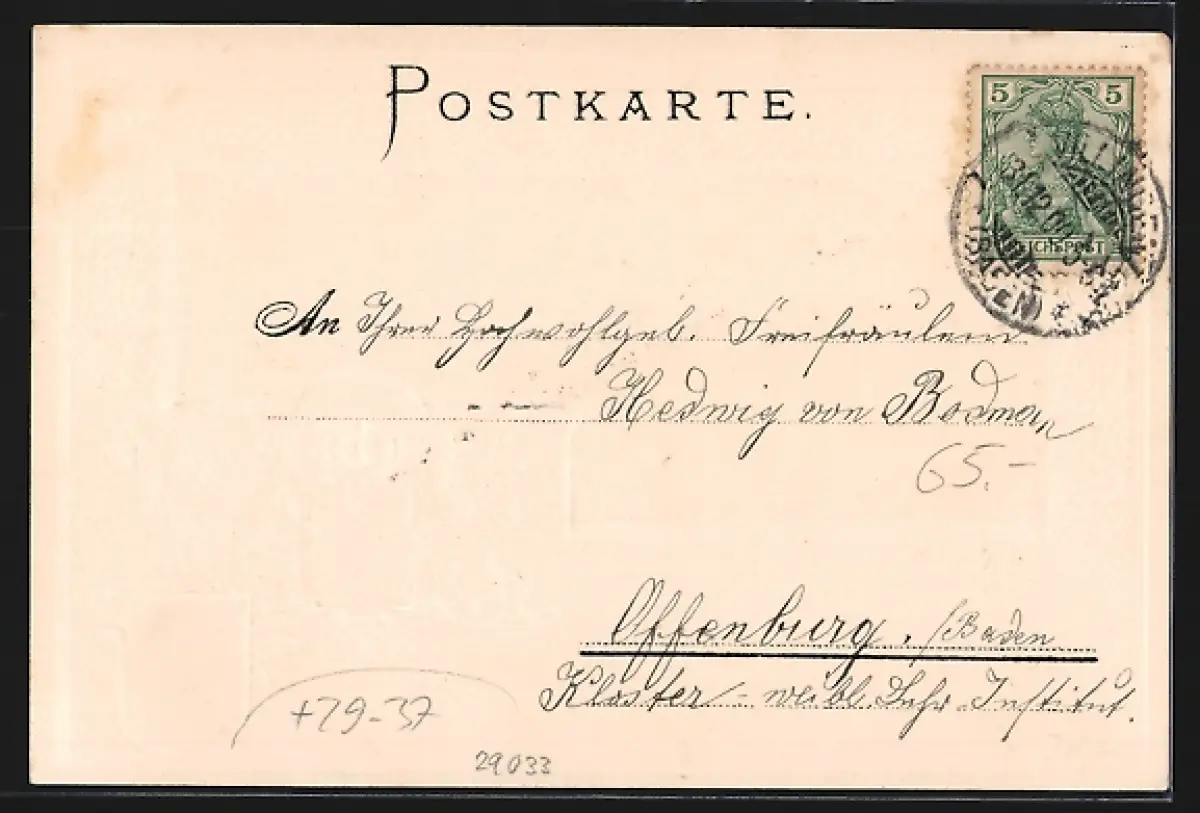 POSTKARTE.
5 5
REICHSPOST
VILLINGEN
31.12.00
(BADEN)
An Ihrer Hochwohlgeb. Freifräulein
Hedwig von Bodman
65.-
Offenburg. /Baden
Kloster - weibl. Lehr-Institut.
+29-37
29033